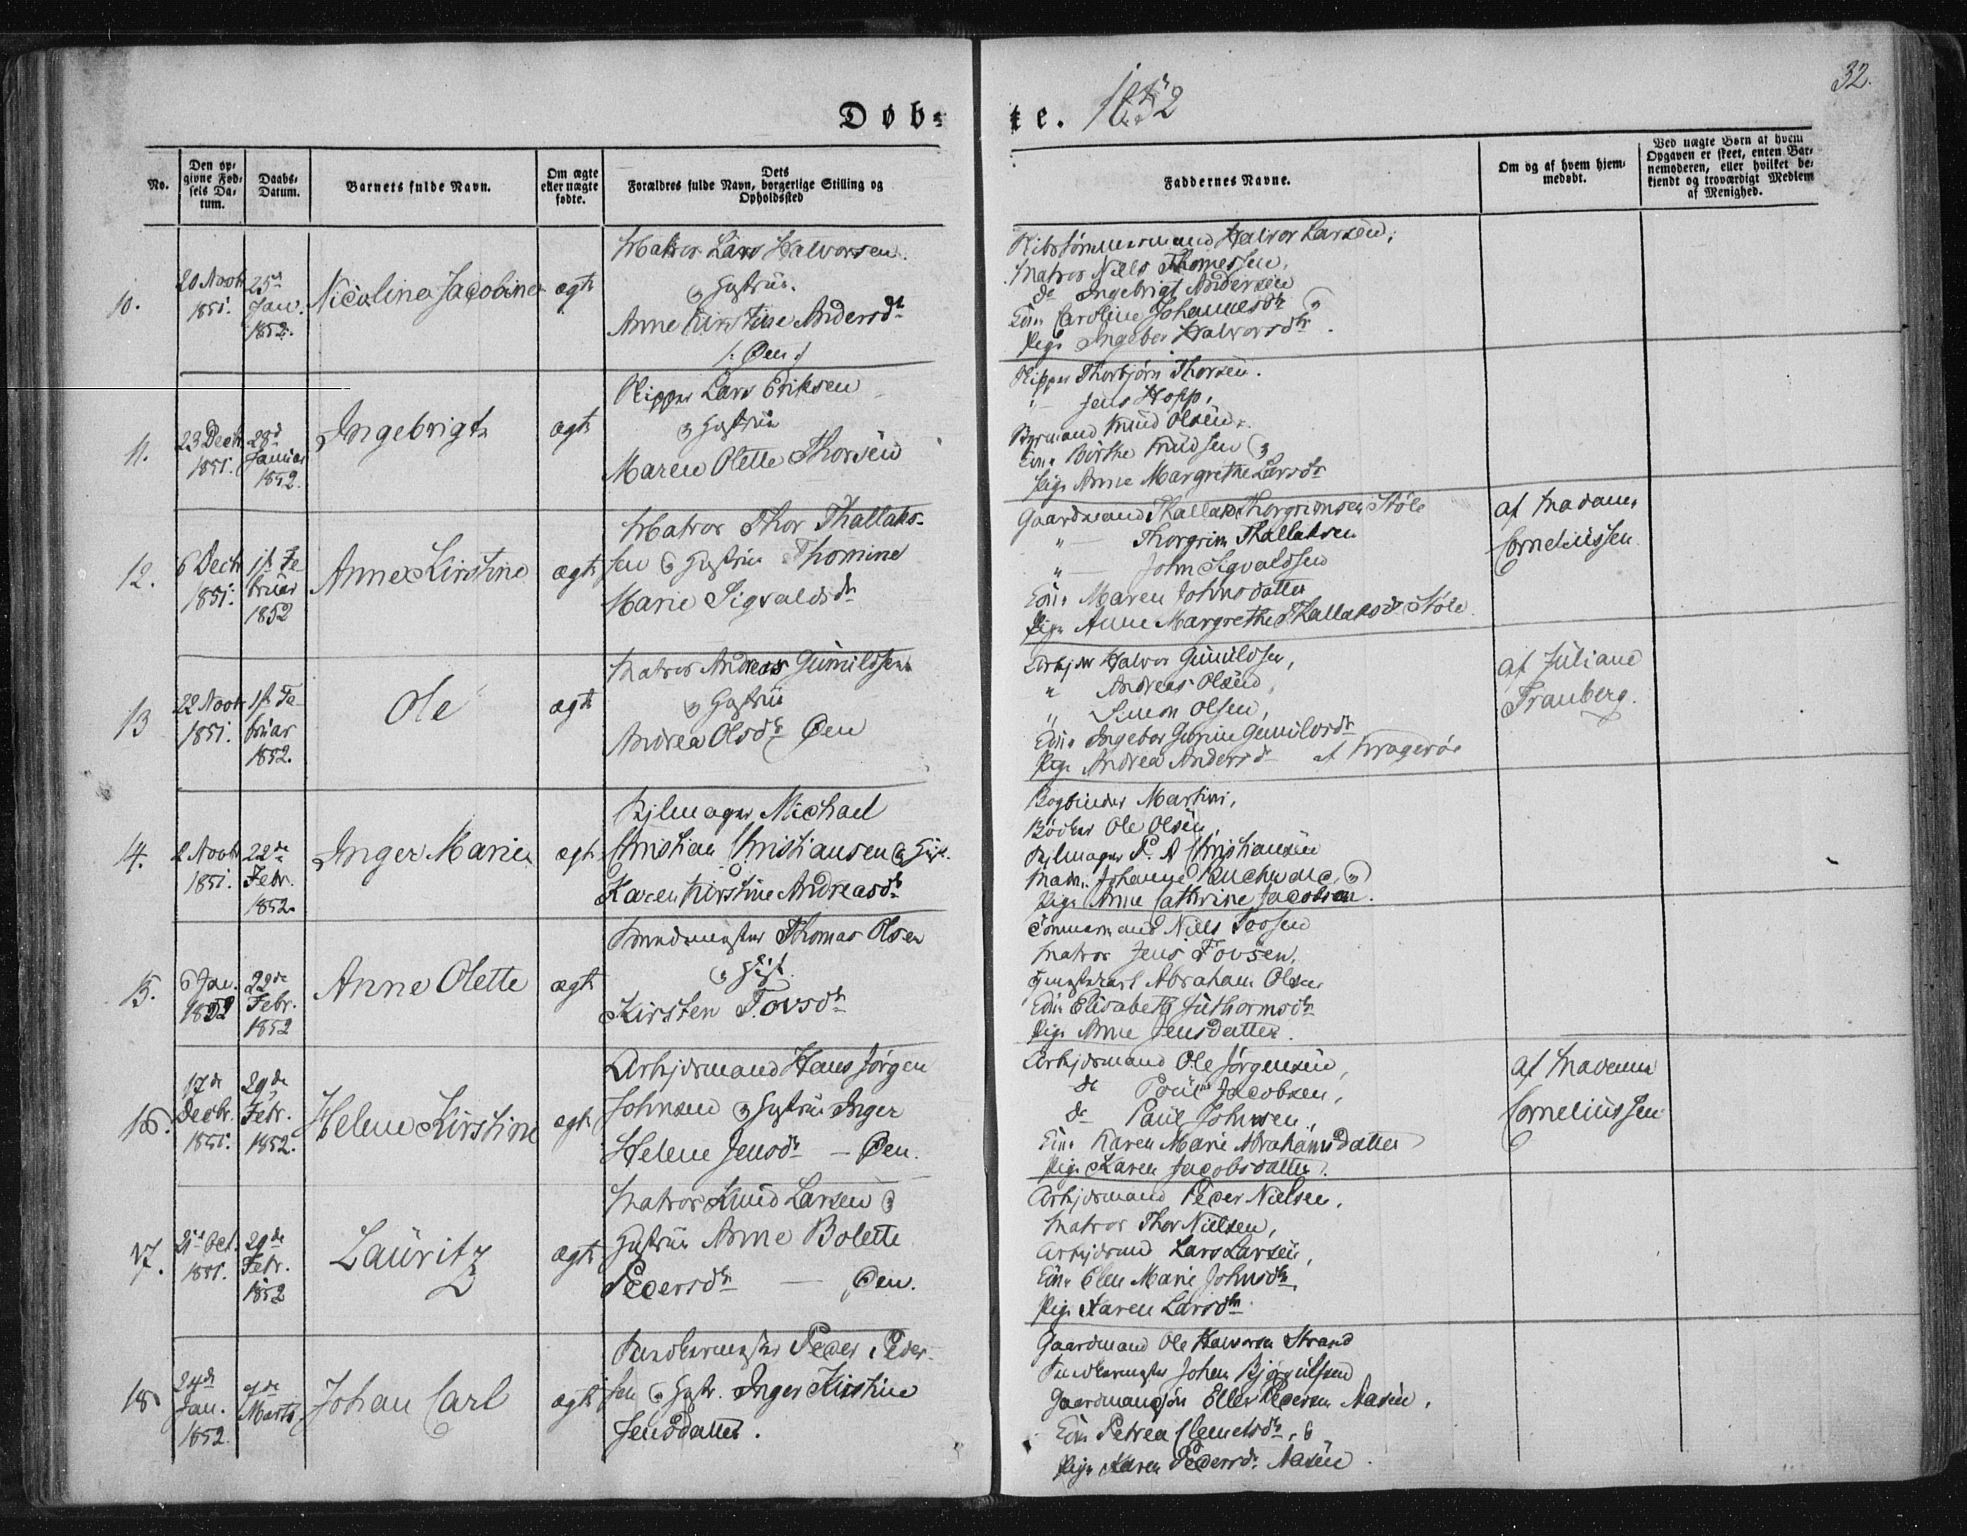 32.
Døb-
te. 1852
No.
Den op-
givne Fød-
sels Da-
tum.
Daabs-
Datum.
Barnets fulde Navn.
Om ægte
eller uægte
fødte.
Dets
Forældres fulde Navn, borgerlige Stilling og
Opholdssted
Faddernes Navne.
Om og af hvem hjem-
medøbt.
Ved uægte Børn at hvem
Opgaven er skeet, enten Bar-
nemoderen, eller hvilket be-
kjendt og troværdigt Medlem
af Menighed.
10.
20 Novbr
1851.
25de
Jan.
1852.
Nicoline Jacobine
ægte
Matros Lars Halvorsen
Hustrue.
Anne Kirstine Andersdtr
Øen
Skibstømmermand Halvor Larsen,
Matros Niels Thomessen,
do Ingebrigt Andersen
Kone Caroline Johannesdtr
Pige Ingebor Halvorsdtr.
11.
23 Decbr
1851.
28de
Januar
1852.
Ingebrigt
ægte
Skipper Lars Eriksen
Hustrue
Maren Olette Thorsen
Skipper Thorbjørn Thorsen.
Jens Hopp,
Knud Olsen
Kone Birthe Knudsen
Pige Anne Margrethe Larsdtr
12.
6 Decbr
1851.
1st Fe-
bruar
1852
Anne Kirstine
ægte
Matros Thor Thallaks-
sen Hustrue Thomine
Marie Sigvaldsdtr
Gaardmand Thallak Thorgrimsen Støle
" Thorgrim Thallaksen
" John Sigvaldsen
Kone Maren Johnsdatter
Pige Anne Margrethe Thallaksdtr Støle
af Madame
Corneliussen
13
22 Novbr
1851.
1st Fe-
bruar
1852.
Ole
ægte
Matros Andreas Gunnildsen
Hustrue
Andrea Olsdtr Øen
Arbjdr Halvor Gunildsen,
" Andreas Olsen,
" Simon Olsen,
Kone Ingebor Gunildsdtr
Pige Andrea Andersdtr af Kragerøe
af Juliane
Tranberg.
14.
2 Novbr
1851.
22de
Febr.
1852.
Inger Marie
ægte
Michael
Christian Christiansen
Karen Kirstine Andreasdtr
Bogbinder Martini,
Bødker Ole Olsen,
P. A Christiansen
Mad. Johanne
Pige Anne Cathrine Jacobsen.
15.
6 Jan.
1852
22de
Febr.
1852
Anne Olette
ægte
Thomas Olsen
Kirsten Tovsdtr
Tømmermand Niels Tovsen
Matros Jens Tovsen,
Abraham Olsen
Kone Elisabeth Guthormsdtr
Pige Anne Jensdatter.
16.
17de
Decbr.
1851.
29de
Febr.
1852.
Helene Kirstine
ægte
Arbjdsmand Hans Jørgen
Johnsen Hustrue Inger
Helene Jensdtr — Øen.
Arbjdsmand Ole Jørgensen,
do Poul Jacobsen,
do Paul Johnsen,
Kone Karen Marie Abrahamsdatter
Pige Karen Jacobsdatter.
af Madame
Corneliussen
17.
21de Oct.
1851.
29de
Febr.
1852
Lauritz
ægte
Matros Knud Larsen
Hustrue Anne Bolette
Pedersdtr — Øen.
Arbjdsmand Peder Nielsen,
Matros Thor Nielsen,
Arbjdsmd Lars Larsen,
Kone Elen Marie Johnsdtr,
Pige Karen Larsdtr.
18
24de
Jan.
1852.
7de
Marts
Johan Carl
ægte
Peder Peder-
sen Hustr. Inger Kirstine
Jensdatter.
Gaardmand Ole Halvorsen Strand
Johan Bjørgulfsen
Gaardmandssøn Ellef Pedersen Aasen,
Kone Petrea Clemetsdtr,
Pige Karen Pedersdtr Aasen.